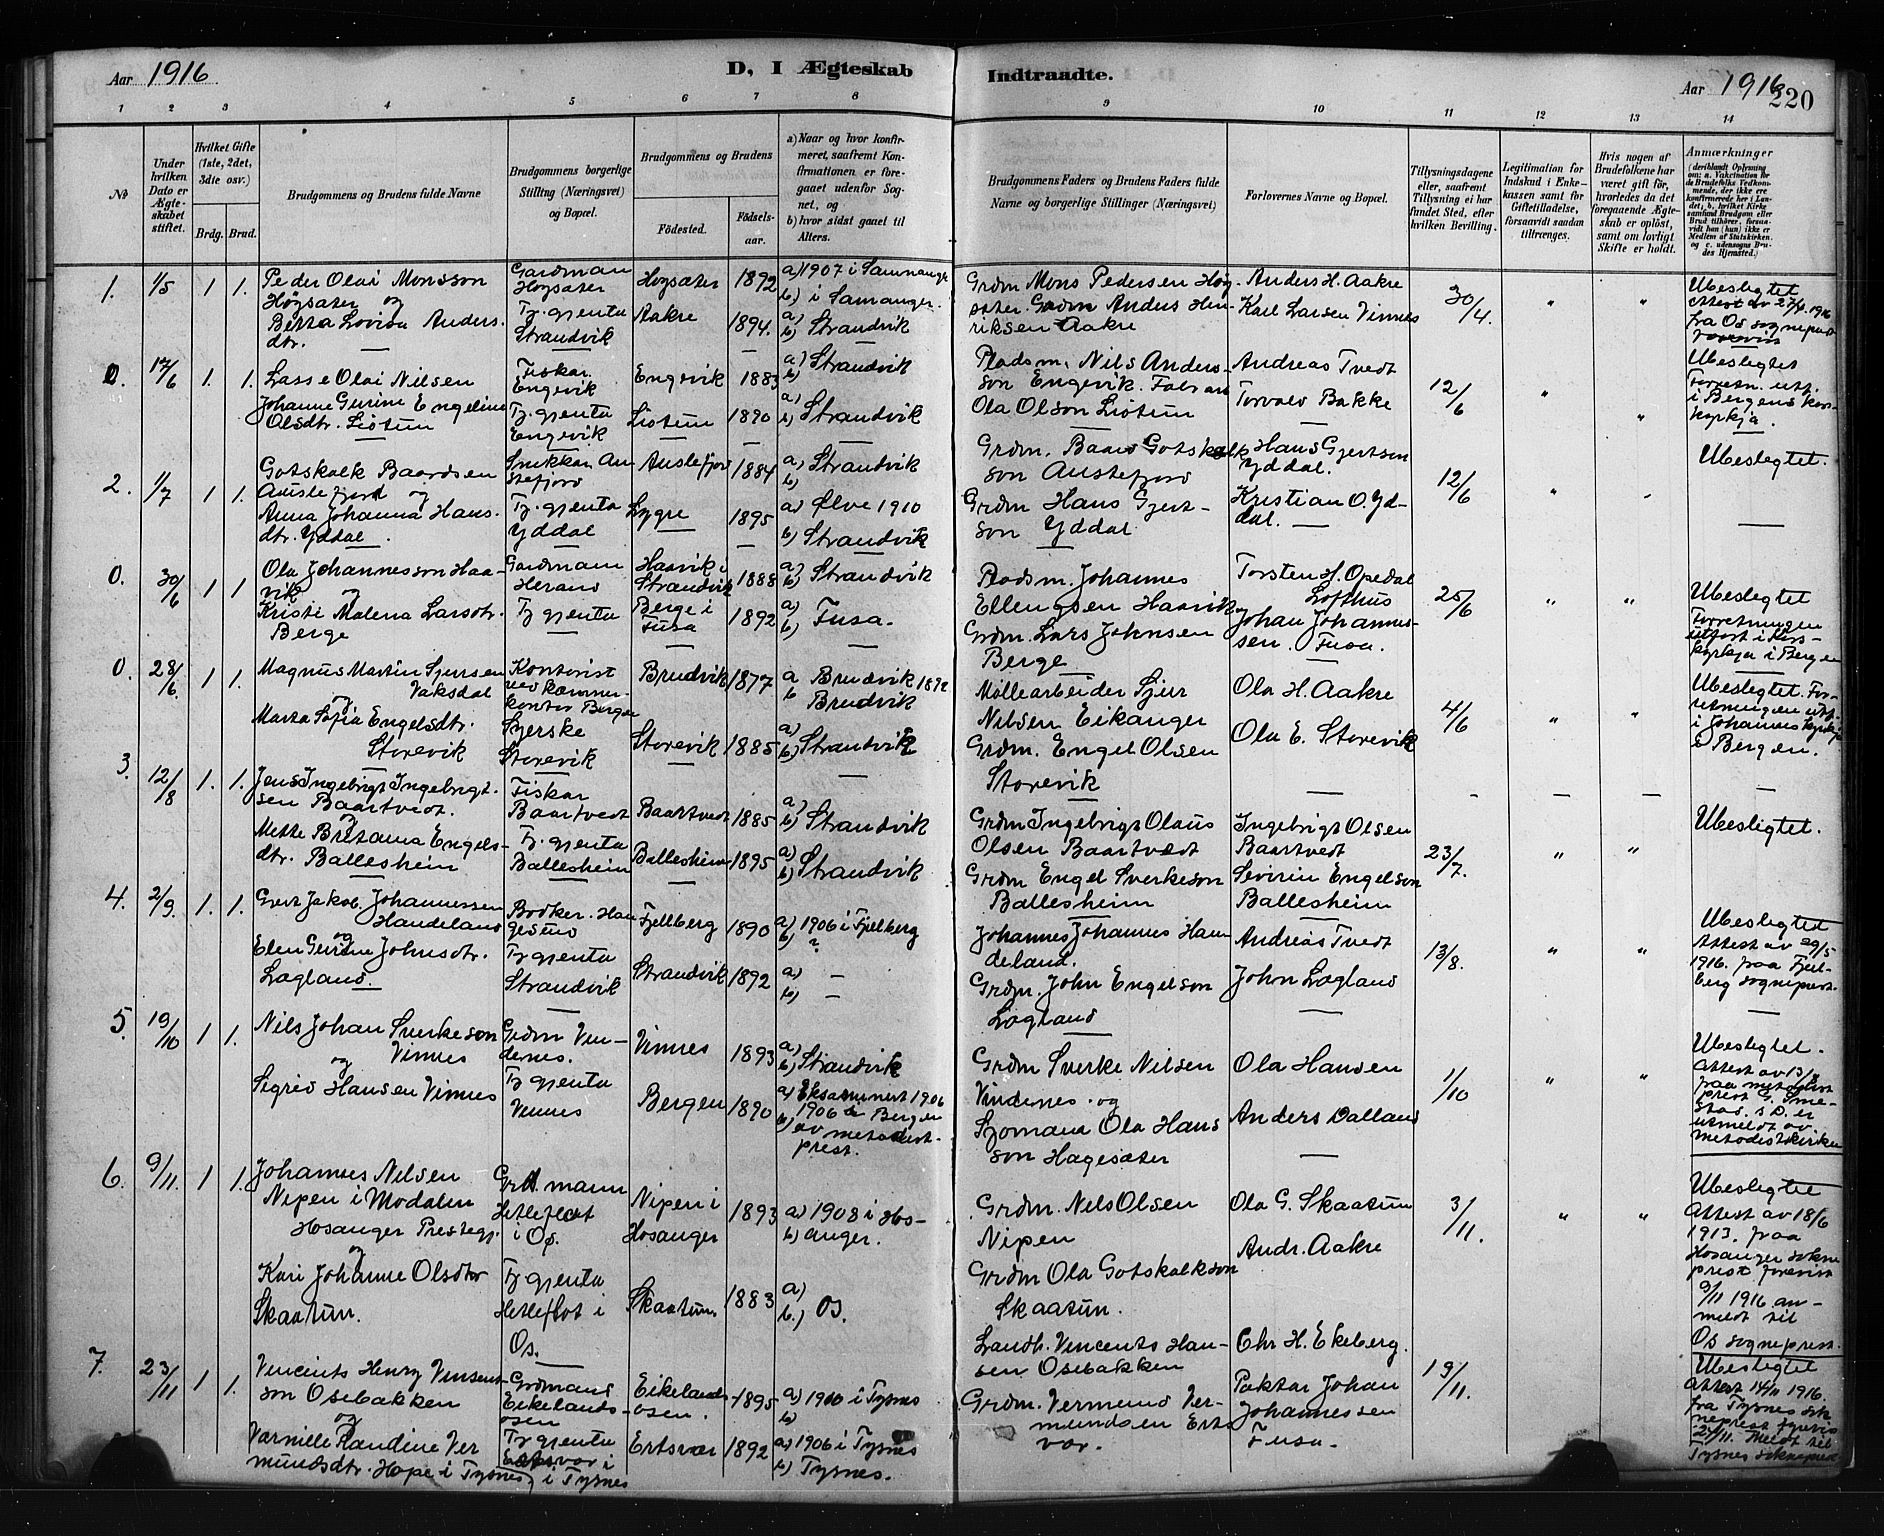 Aar 1916
D, I Ægteskab
Indtraadte.
Aar 1916
220
1 2 3 4 5 6 7 8 9 10 11 12 13 14
№
Under hvilken Dato er Ægteskabet stiftet.
Hvilket Gifte (1ste, 2det, 3die osv.)
Brdg. Brud.
Brudgommens og Brudens fulde Navne
Brudgommens borgerlige Stilling (Næringsvei) og Bopæl.
Brudgommens og Brudens
Fødested.
Fødselsaar.
a) Naar og hvor konfirmeret, saafremt Konfirmationen er foregaaet udenfor Sognet, og
b) hvor sidst gaaet til Alters.
Brudgommens Faders og Brudens Faders fulde Navne og borgerlige Stillinger (Næringsvei)
Forlovernes Navne og Bopæl.
Tillysningsdagene eller, saafremt Tillysning ei har fundet Sted, efter hvilken Bevilling.
Legitimation for Indskud i Enkekassen samt for Giftetilladelse, forsaavidt saadan tiltrænges.
Hvis nogen af Brudefolkene har været gift før, hvorledes da det foregaaende Ægteskab er opløst, samt om lovligt Skifte er holdt.
Anmærkninger
1. 1/5 1 1.
Peder Olai Monsson
Høysæter og
Berta Lovisa Anders
dtr.
Gardmann
Høysæter
Tj. gjenta
Strandvik
Høysæter 1892
Aakre 1894.
a) 1907 i Samnanger
b) i Samanger.
a)
b) Strandvik
Grdm Mons Pedersen Høy
sæter. Grdm Anders Hen
riksen Aakre
Anders H. Aakre
Karl Larsen Vinnes
30/4. " "
Ubeslegtet
attest av 27/4 1916
fra Os sogneprest
0. 17/6 1. 1.
Lasse Olai Nilsen
Johanne Gurine Engeline
Olsdtr. Liotun
Fiskar
Engevik
Tj. gjenta
Engevik
Engevik 1883
Liotun 1890
a) Strandvik
b)
a)
b) Strandvik
Pladsm. Nils Anders
son Engevik. Fabr arb
Ola Olson Liotun
Andreas Tvedt
Torvald Bakke
12/6 " "
Ubeslegtet
Forretn. utf.
i Bergens kors
kyrkja.
2. 1/7 1 1.
Gotskalk Baardsen
Austefjord og
Anna Johanna Hans
dtr. Yddal
Snikkar Au
stefjord
Tj. gjenta
Yddal
Austefjord 1884
Lygre 1895
a) Strandvik
b)
a) Ølve 1910
b) Strandvik
Grdm. Baard Gotskalk
son Austefjord
Grdm Hans Gjert-
son Yddal
Hans Gjertson
Yddal.
Kristian O. Yd-
dal.
12/6 "
Ubeslegtet.
0. 30/6 1 1
Ola Johannesson Haa-
vik og
Kristi Malena Larsdtr
Berge
Gardmann
Herand
Tj. gjenta
Haavik i
Strandvik 1888
Berge i
Fusa 1892
a)
b) Strandvik
a)
b) Fusa.
Pladsm. Johannes
Ellengsen Haavik og
Grdm. Lars Johnsen
Berge
Torsten H. Opedal
Lofthus
Johan Johannes-
sen. Fusa.
25/6 " "
Ubeslegtet
Forretningen
utført i Kors-
kyrkja i Bergen
0. 28/6. 1 1.
Magnus Martin Sjursen
Vaksdal
og
Marta Sofia Engelsdtr.
Storevik
Kontorist
ved kæmner-
kontor Bergen
Syerske
Storevik
Brudvik 1877
Storevik 1885
a Brudvik 1892
b Brudvik
a)
b) Strandvik
Møllearbeider Sjur
Nilsen Eikanger
Grdm. Engel Olsen
Storevik
Ola H. Aakre
Ola E. Storevik
4/6 " "
Ubeslegtet. For-
retningen utf.
i Johannes kyrkja
i Bergen.
3. 12/8 1. 1.
Jens Ingebrigt Ingebrigt-
sen Baartvedt.
og
Mette Britana Engels-
dtr. Ballesheim
Fiskar
Baartvedt
Tj. gjenta
Ballesheim
Baartvedt 1885
Ballesheim 1895
a)
b) Strandvik
a)
b) Strandvik
Grdm Ingebrigt Olaus
Olsen Baartvedt
Grdm Engel Sverkeson
Ballesheim
Ingebrigt Olsen
Baartvedt
Severin Engelson
Ballesheim
23/7. " "
Ubeslegtet.
4. 2/9. 1. 1.
Gert Jakob Johannessen
Handeland
og
Elen Gurine Johnsdtr.
Lagland.
Bødker. Hau
gesund
Tj gjenta
Strandvik
Fjellberg 1890
Strandvik 1892
a) 1906 i Fjelberg
b) ?
a) –
b) –
Johannes Johannes Han
deland.
Grdm. John Engelson
Lagland
Andreas Tvedt
John Lagland
13/8. " "
Ubeslegtet
Attest av 29/5
1916. fraa Fjel-
berg sogneprest.
5. 19/10 1 1.
Nils Johan Sverkeson
Vinnes
og
Sigrid Hansen Vinnes
Grdm Ven-
denes.
Tj gjenta
Vennes
Vinnes 1893
Bergen 1890
a)
b) Strandvik
a) Eksaminert 1906
1906 i Bergen
b) av metodist-
prest.
Grdm Sverke Nilsen
Vindenes. og
Sjømann Ola Hans
son Hagesæter
Ola Hansen
Anders Dalland
1/10 " "
Ubeslegtet.
Attest av
fraa metodist
prest G. Sme-
stad. s D. er
utmeldt av
metodistkirken
6. 9/11. 1 1.
Johannes Nilsen
Nipen i Modalen
Hosanger Prestegj.
og
Kari Johanne Olsdtr
Skaatun.
Grd. mann
Hetleflot
i Os.
Tj gjenta
Hetleflot i
Os.
Nipen i
Hosanger 1893
Skaatun. 1883
a) 1908 i Hos-
b) anger.
a)
b.) Os.
Grdm. Nils Olsen
Nipen
Grdm Ola Gotskalkson
Skaatun.
Ola G. Skaatun
Andr. Aakre
3/11. " "
Ubeslegtet
Attest av 18/6
1913. fraa
Hosanger sokne
prest forevist
9/11 1916 an-
meldt til
Os sogneprest.
7. 23/11 1 1.
Vincents Henry Vinsent-
son Osebakken
og
Varnille Randine Ver
mundsdtr. Hope i Tysnes
Grdmand
Eikelands-
osen
Tj gjenta
Ertsvor i
i Tysnes
Eikelands-
osen. 1895
Ertsvor 1892
a) 1910 i Tysnes
b)
a) 1906 i Tysnes
b) Tysnes.
Landh. Vincents Han-
sen Osebakken
Grdm. Vermund Ver-
mundsen Erts
vor.
Chr H. Ekeberg.
Paktar Johan
Johannessen
Fusa.
19/11.
Ubeslegtet
Attest 14/11 1916.
fra Tysnes sok
neprest forevist
Meldt til
Tysnes sokneprest